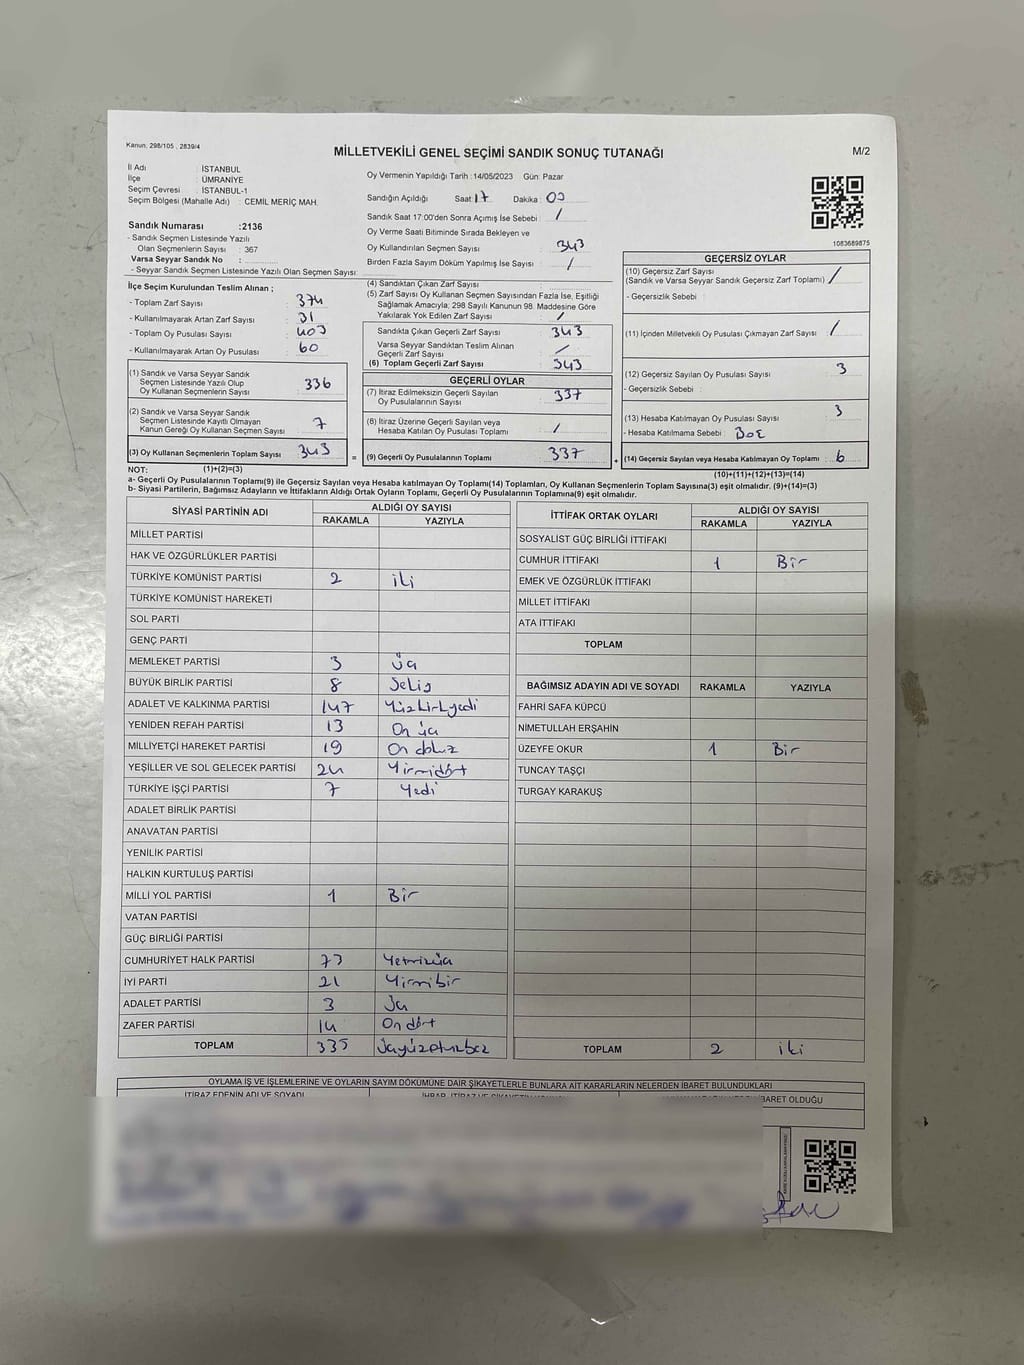 Kanun, 298/105 , 2839/4
MİLLETVEKİLİ GENEL SEÇİMİ SANDIK SONUÇ TUTANAĞI
M/2
İl Adı : İSTANBUL
İlçe : ÜMRANİYE
Seçim Çevresi : İSTANBUL-1
Seçim Bölgesi (Mahalle Adı) : CEMİL MERİÇ MAH.
Sandık Numarası :2136
- Sandık Seçmen Listesinde Yazılı
Olan Seçmenlerin Sayısı : 367
Varsa Seyyar Sandık No :
- Seyyar Sandık Seçmen Listesinde Yazılı Olan Seçmen Sayısı:
Oy Vermenin Yapıldığı Tarih :14/05/2023 Gün: Pazar
Sandığın Açıldığı Saat: 17 Dakika : 00
Sandık Saat 17:00'den Sonra Açımış İse Sebebi : /
Oy Verme Saati Bitiminde Sırada Bekleyen ve
Oy Kullandırılan Seçmen Sayısı : 343
Birden Fazla Sayım Döküm Yapılmış İse Sayısı : /
1083689875
İlçe Seçim Kurulundan Teslim Alınan ;
- Toplam Zarf Sayısı : 374
- Kullanılmayarak Artan Zarf Sayısı : 31
- Toplam Oy Pusulası Sayısı : 403
- Kullanılmayarak Artan Oy Pusulası : 60
(1) Sandık ve Varsa Seyyar Sandık
Seçmen Listesinde Yazılı Olup
Oy Kullanan Seçmenlerin Sayısı : 336
(2) Sandık ve Varsa Seyyar Sandık
Seçmen Listesinde Kayıtlı Olmayan
Kanun Gereği Oy Kullanan Seçmen Sayısı : 7
(3) Oy Kullanan Seçmenlerin Toplam Sayısı : 343
(4) Sandıktan Çıkan Zarf Sayısı :
(5) Zarf Sayısı Oy Kullanan Seçmen Sayısından Fazla İse, Eşitliği
Sağlamak Amacıyla; 298 Sayılı Kanunun 98. Maddesine Göre
Yakılarak Yok Edilen Zarf Sayısı : /
Sandıkta Çıkan Geçerli Zarf Sayısı : 343
Varsa Seyyar Sandıktan Teslim Alınan
Geçerli Zarf Sayısı : /
(6) Toplam Geçerli Zarf Sayısı : 343
GEÇERLİ OYLAR
(7) İtiraz Edilmeksizin Geçerli Sayılan
Oy Pusulalarının Sayısı : 337
(8) İtiraz Üzerine Geçerli Sayılan veya
Hesaba Katılan Oy Pusulası Toplamı : /
= (9) Geçerli Oy Pusulalarının Toplamı : 337
GEÇERSİZ OYLAR
(10) Geçersiz Zarf Sayısı
(Sandık ve Varsa Seyyar Sandık Geçersiz Zarf Toplamı) : /
- Geçersizlik Sebebi :
(11) İçinden Milletvekili Oy Pusulası Çıkmayan Zarf Sayısı : /
(12) Geçersiz Sayılan Oy Pusulası Sayısı : 3
- Geçersizlik Sebebi :
(13) Hesaba Katılmayan Oy Pusulası Sayısı : 3
- Hesaba Katılmama Sebebi : BOŞ
+ (14) Geçersiz Sayılan veya Hesaba Katılmayan Oy Toplamı : 6
NOT: (1)+(2)=(3)
(10)+(11)+(12)+(13)=(14)
a- Geçerli Oy Pusulasının Toplamı(9) ile Geçersiz Sayılan veya Hesaba katılmayan Oy Toplamı(14) Toplamları, Oy Kullanan Seçmenlerin Toplam Sayısına(3) eşit olmalıdır. (9)+(14)=(3)
b- Siyasi Partilerin, Bağımsız Adayların ve İttifakların Aldığı Ortak Oyların Toplamı, Geçerli Oy Pusulalarının Toplamına(9) eşit olmalıdır.
SİYASİ PARTİNİN ADI ALDIĞI OY SAYISI
RAKAMLA YAZIYLA
MİLLET PARTİSİ
HAK VE ÖZGÜRLÜKLER PARTİSİ
TÜRKİYE KOMÜNİST PARTİSİ 2 iki
TÜRKİYE KOMÜNİST HAREKETİ
SOL PARTİ
GENÇ PARTİ
MEMLEKET PARTİSİ 3 üç
BÜYÜK BİRLİK PARTİSİ 8 Sekiz
ADALET VE KALKINMA PARTİSİ 147 Yüzkırkyedi
YENİDEN REFAH PARTİSİ 13 On üç
MİLLİYETÇİ HAREKET PARTİSİ 19 On dokuz
YEŞİLLER VE SOL GELECEK PARTİSİ 24 Yirmidört
TÜRKİYE İŞÇİ PARTİSİ 7 Yedi
ADALET BİRLİK PARTİSİ
ANAVATAN PARTİSİ
YENİLİK PARTİSİ
HALKIN KURTULUŞ PARTİSİ
MİLLİ YOL PARTİSİ 1 Bir
VATAN PARTİSİ
GÜÇ BİRLİĞİ PARTİSİ
CUMHURİYET HALK PARTİSİ 73 Yetmişüç
İYİ PARTİ 21 Yirmibir
ADALET PARTİSİ 3 üç
ZAFER PARTİSİ 14 On dört
TOPLAM 335 üçyüzotuzbeş
İTTİFAK ORTAK OYLARI ALDIĞI OY SAYISI
RAKAMLA YAZIYLA
SOSYALİST GÜÇ BİRLİĞİ İTTİFAKI
CUMHUR İTTİFAKI 1 Bir
EMEK VE ÖZGÜRLÜK İTTİFAKI
MİLLET İTTİFAKI
ATA İTTİFAKI
TOPLAM
BAĞIMSIZ ADAYIN ADI VE SOYADI RAKAMLA YAZIYLA
FAHRİ SAFA KÜPCÜ
NİMETULLAH ERŞAHİN
ÜZEYFE OKUR 1 Bir
TUNCAY TAŞÇI
TURGAY KARAKUŞ
TOPLAM 2 iki
OYLAMA İŞ VE İŞLEMLERİNE VE OYLARIN SAYIM DÖKÜMÜNE DAİR ŞİKAYETLERLE BUNLARA AİT KARARLARIN NELERDEN İBARET BULUNDUKLARI
İTİRAZ EDENİN ADI VE SOYADI
İBARET OLDUĞU